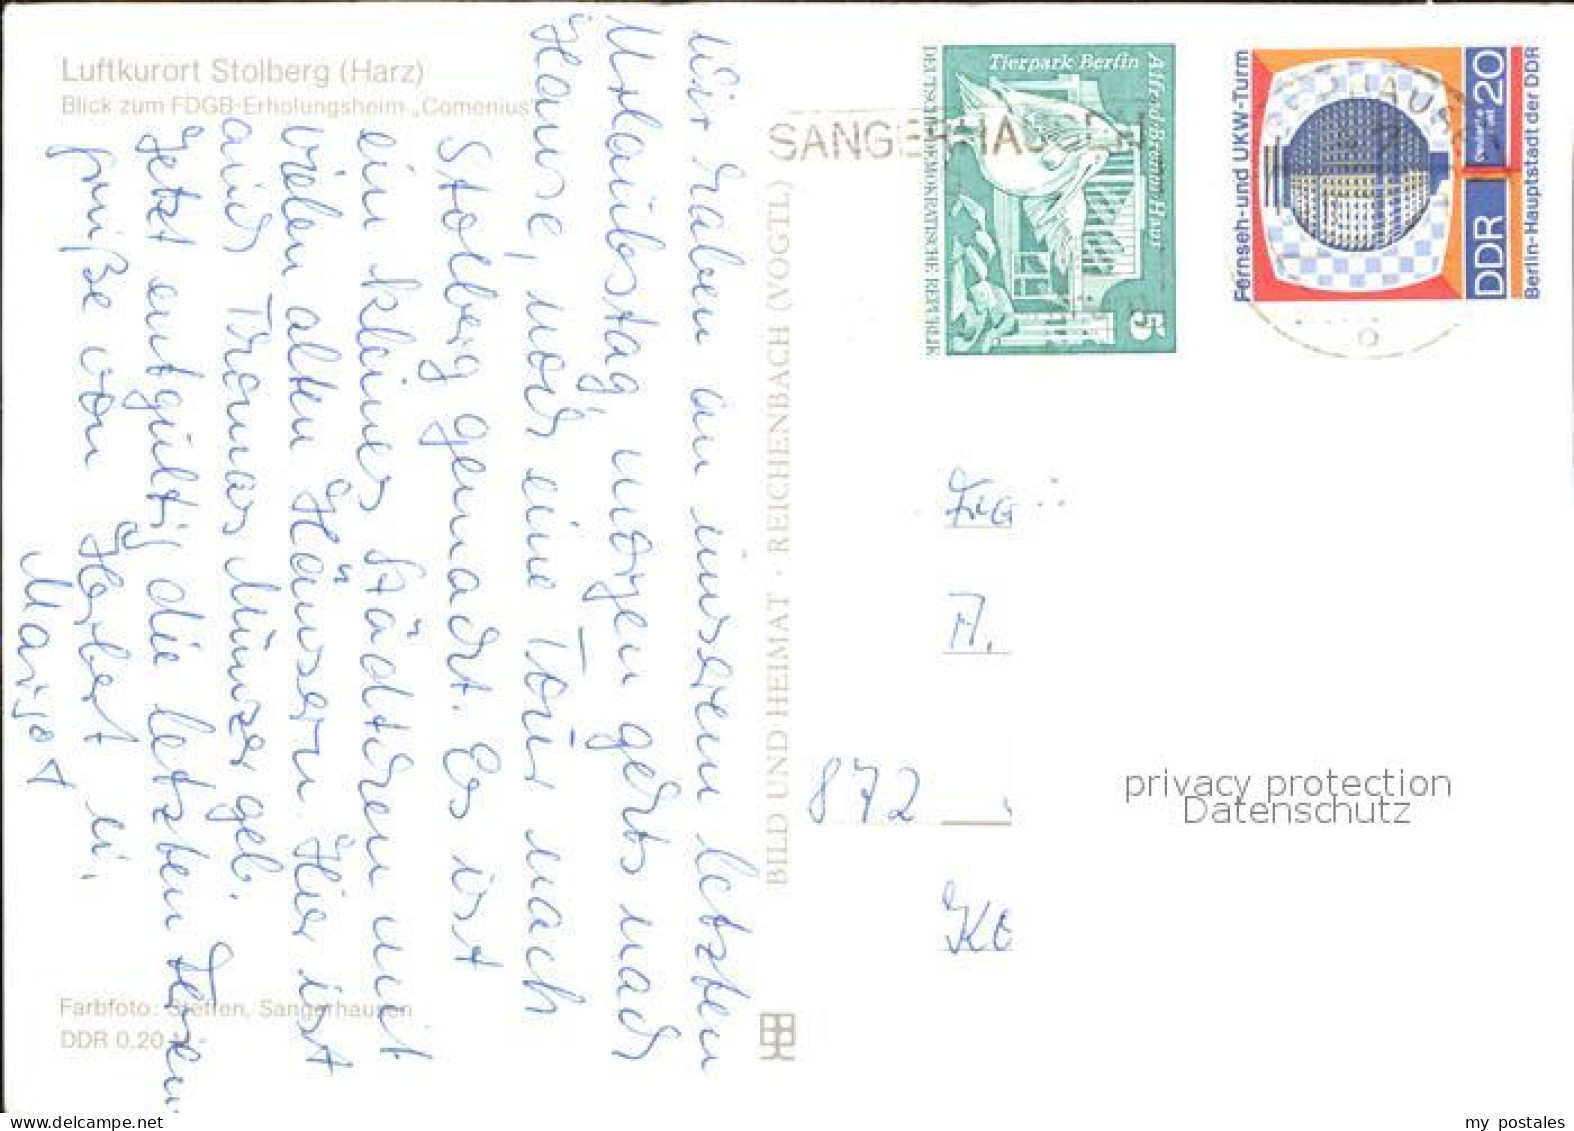 Luftkurort Stolberg (Harz)
Blick zum FDGB-Erholungsheim „Comenius"
Wir haben an unserem letzten
Urlaubstag, morgen gehts nach
Hause, noch eine Tour nach
Stolberg gemacht. Es ist
ein kleines Städtchen mit
vielen alten Häusern. Hier ist
auch Thomas Münzer geb.
Jetzt entgültig die letzten Ferien
grüße von Herbert u.
Margot
Farbfoto: Steffen, Sangerhausen
DDR 0,20
BILD UND HEIMAT · REICHENBACH (VOGTL)
SANGERHAUSEN
Tierpark Berlin
Alfred-Brehm-Haus
DEUTSCHE DEMOKRATISCHE REPUBLIK
5
Fernseh- und UKW-Turm
DDR 20
Berlin-Hauptstadt der DDR
A.
872
KE
privacy protection
Datenschutz
my postales